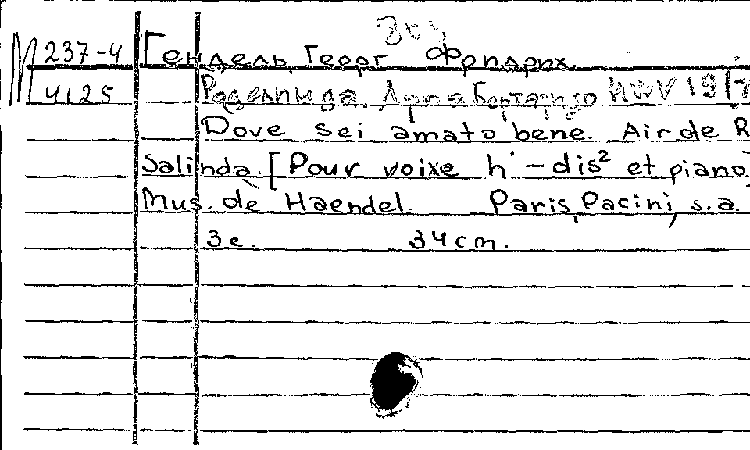 М 237-4 Гендель, Георг Фридрих.
4125 Роделинда. Ария Бертаридо HWV 19/7
Dove sei amato bene. Air de R
Salinda. [Pour voixe h' - dis² et piano.
Mus. de Haendel. Paris, Pacini, s.a.
3 с. 34 cm.